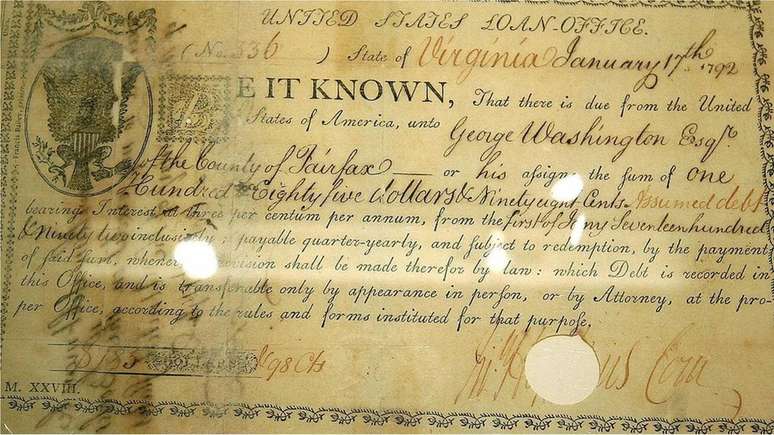 UNITED STATES LOAN-OFFICE.
(No. 336 ) State of Virginia January 17th 1792
BE IT KNOWN, That there is due from the United
States of America, unto George Washington Esqr.
of the County of Fairfax — or his assigns, the sum of one
Hundred & Eighty five dollars & Ninety eight Cents Assumed debt
bearing Interest at three per centum per annum, from the first of Jany Seventeen hundred
& Ninety two inclusively, payable quarter-yearly, and subject to redemption, by the payment
of said sum, whenever provision shall be made therefor by law: which Debt is recorded in
this Office, and is transferable only by appearance in person, or by Attorney, at the pro-
per Office, according to the rules and forms instituted for that purpose.
$ 185 DOLLARS 98 Cts
M. XXVIII.